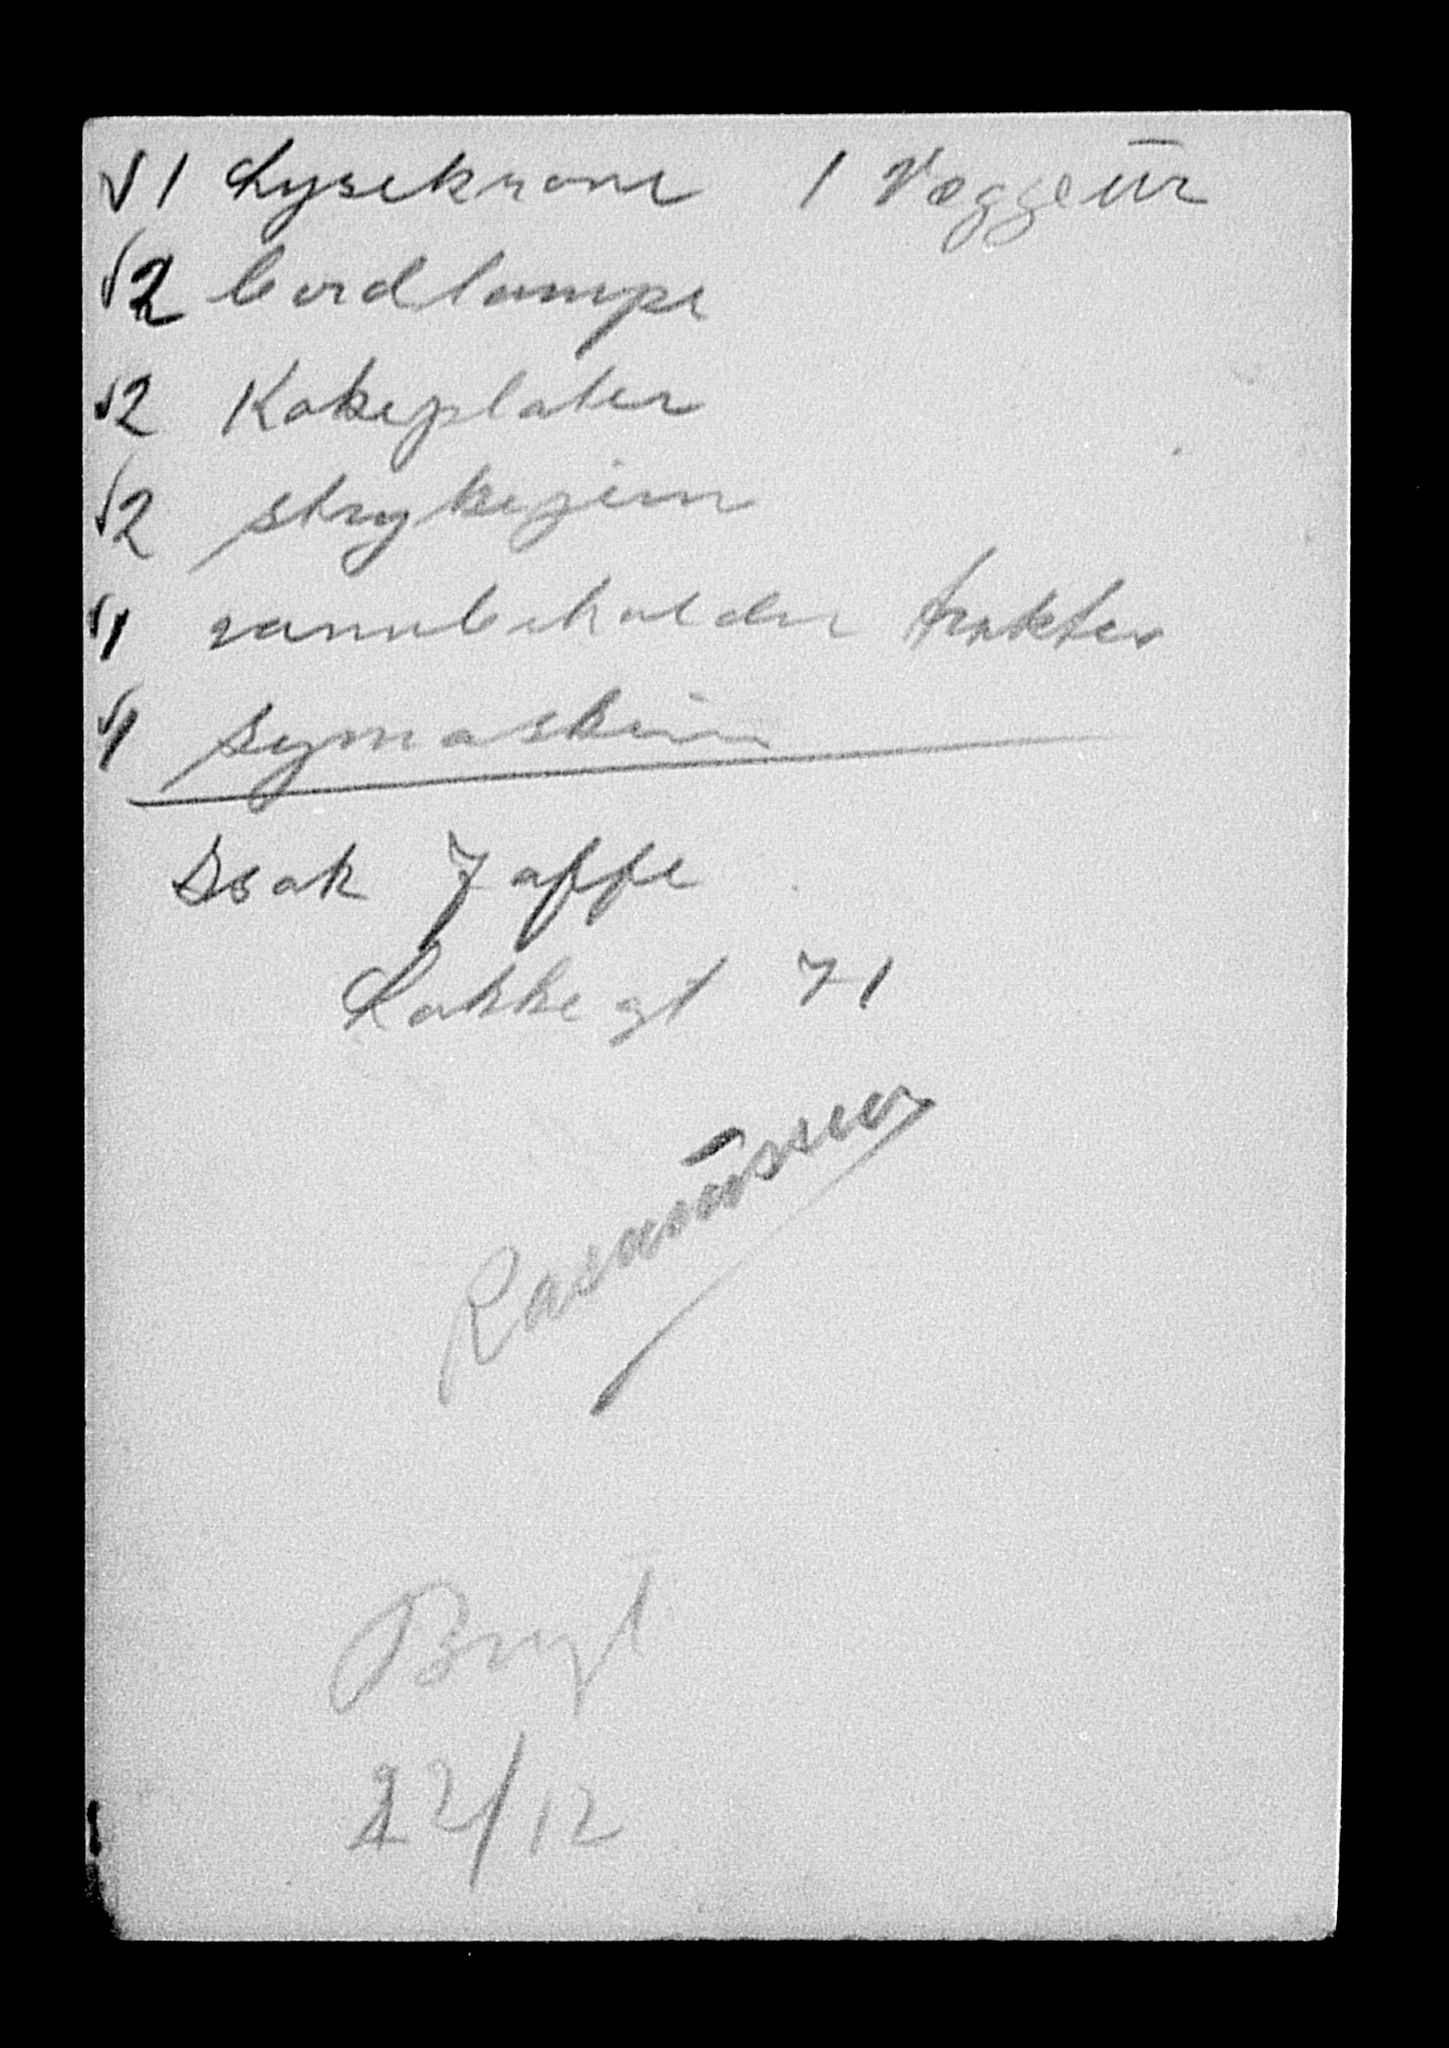 √ 1 Lysekrone 1 Veggeūr
√ 2 bordlampe
√ 2 Kokeplater
√ 2 strykejern
√ 1 vannbeholder
√ 1 symaskin
Isak Jaffe
Lakkegt 71
Rasmūssen
22/12